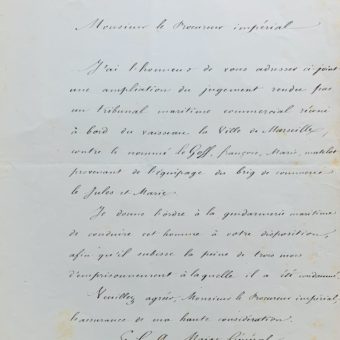 Monsieur le Procureur impérial
J'ai l'honneur de vous adresser ci joint
une ampliation du jugement rendu par
un tribunal maritime commercial réuni
à bord du vaisseau la Ville de Marseille,
contre le nommé le Goff, françois, Marie, matelot
provenant de l'équipage du brig de commerce
le Jules et Marie
Je donne l'ordre à la gendarmerie maritime
de conduire cet homme à votre disposition,
afin qu'il subisse la peine de trois mois
d'emprisonnement à laquelle il a été condamné.
Veuillez agréer, Monsieur le Procureur impérial,
l'assurance de ma haute considération.